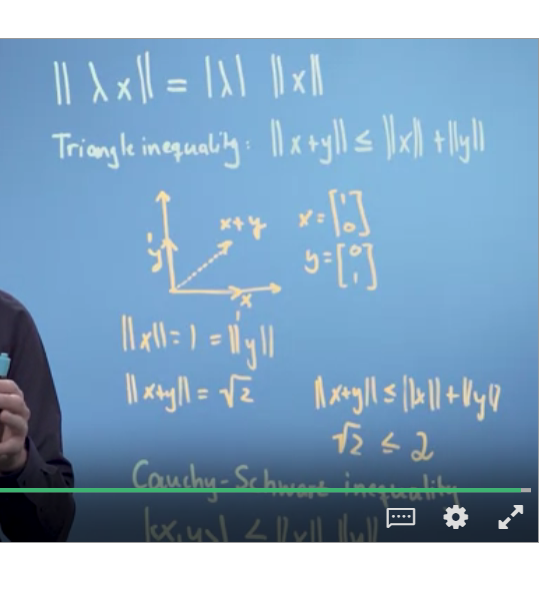 || λx|| = |λ| ||x||
Triangle inequality: ||x+y|| ≤ ||x|| + ||y||
x+y
x = [1 0]
1
y
y = [0 1]
x
1
||x|| = 1 = ||y||
||x+y|| = √2
||x+y|| ≤ ||x|| + ||y||
√2 ≤ 2
Cauchy-Schwarz inequality
|⟨x,y⟩| ≤ ||x|| ||y||